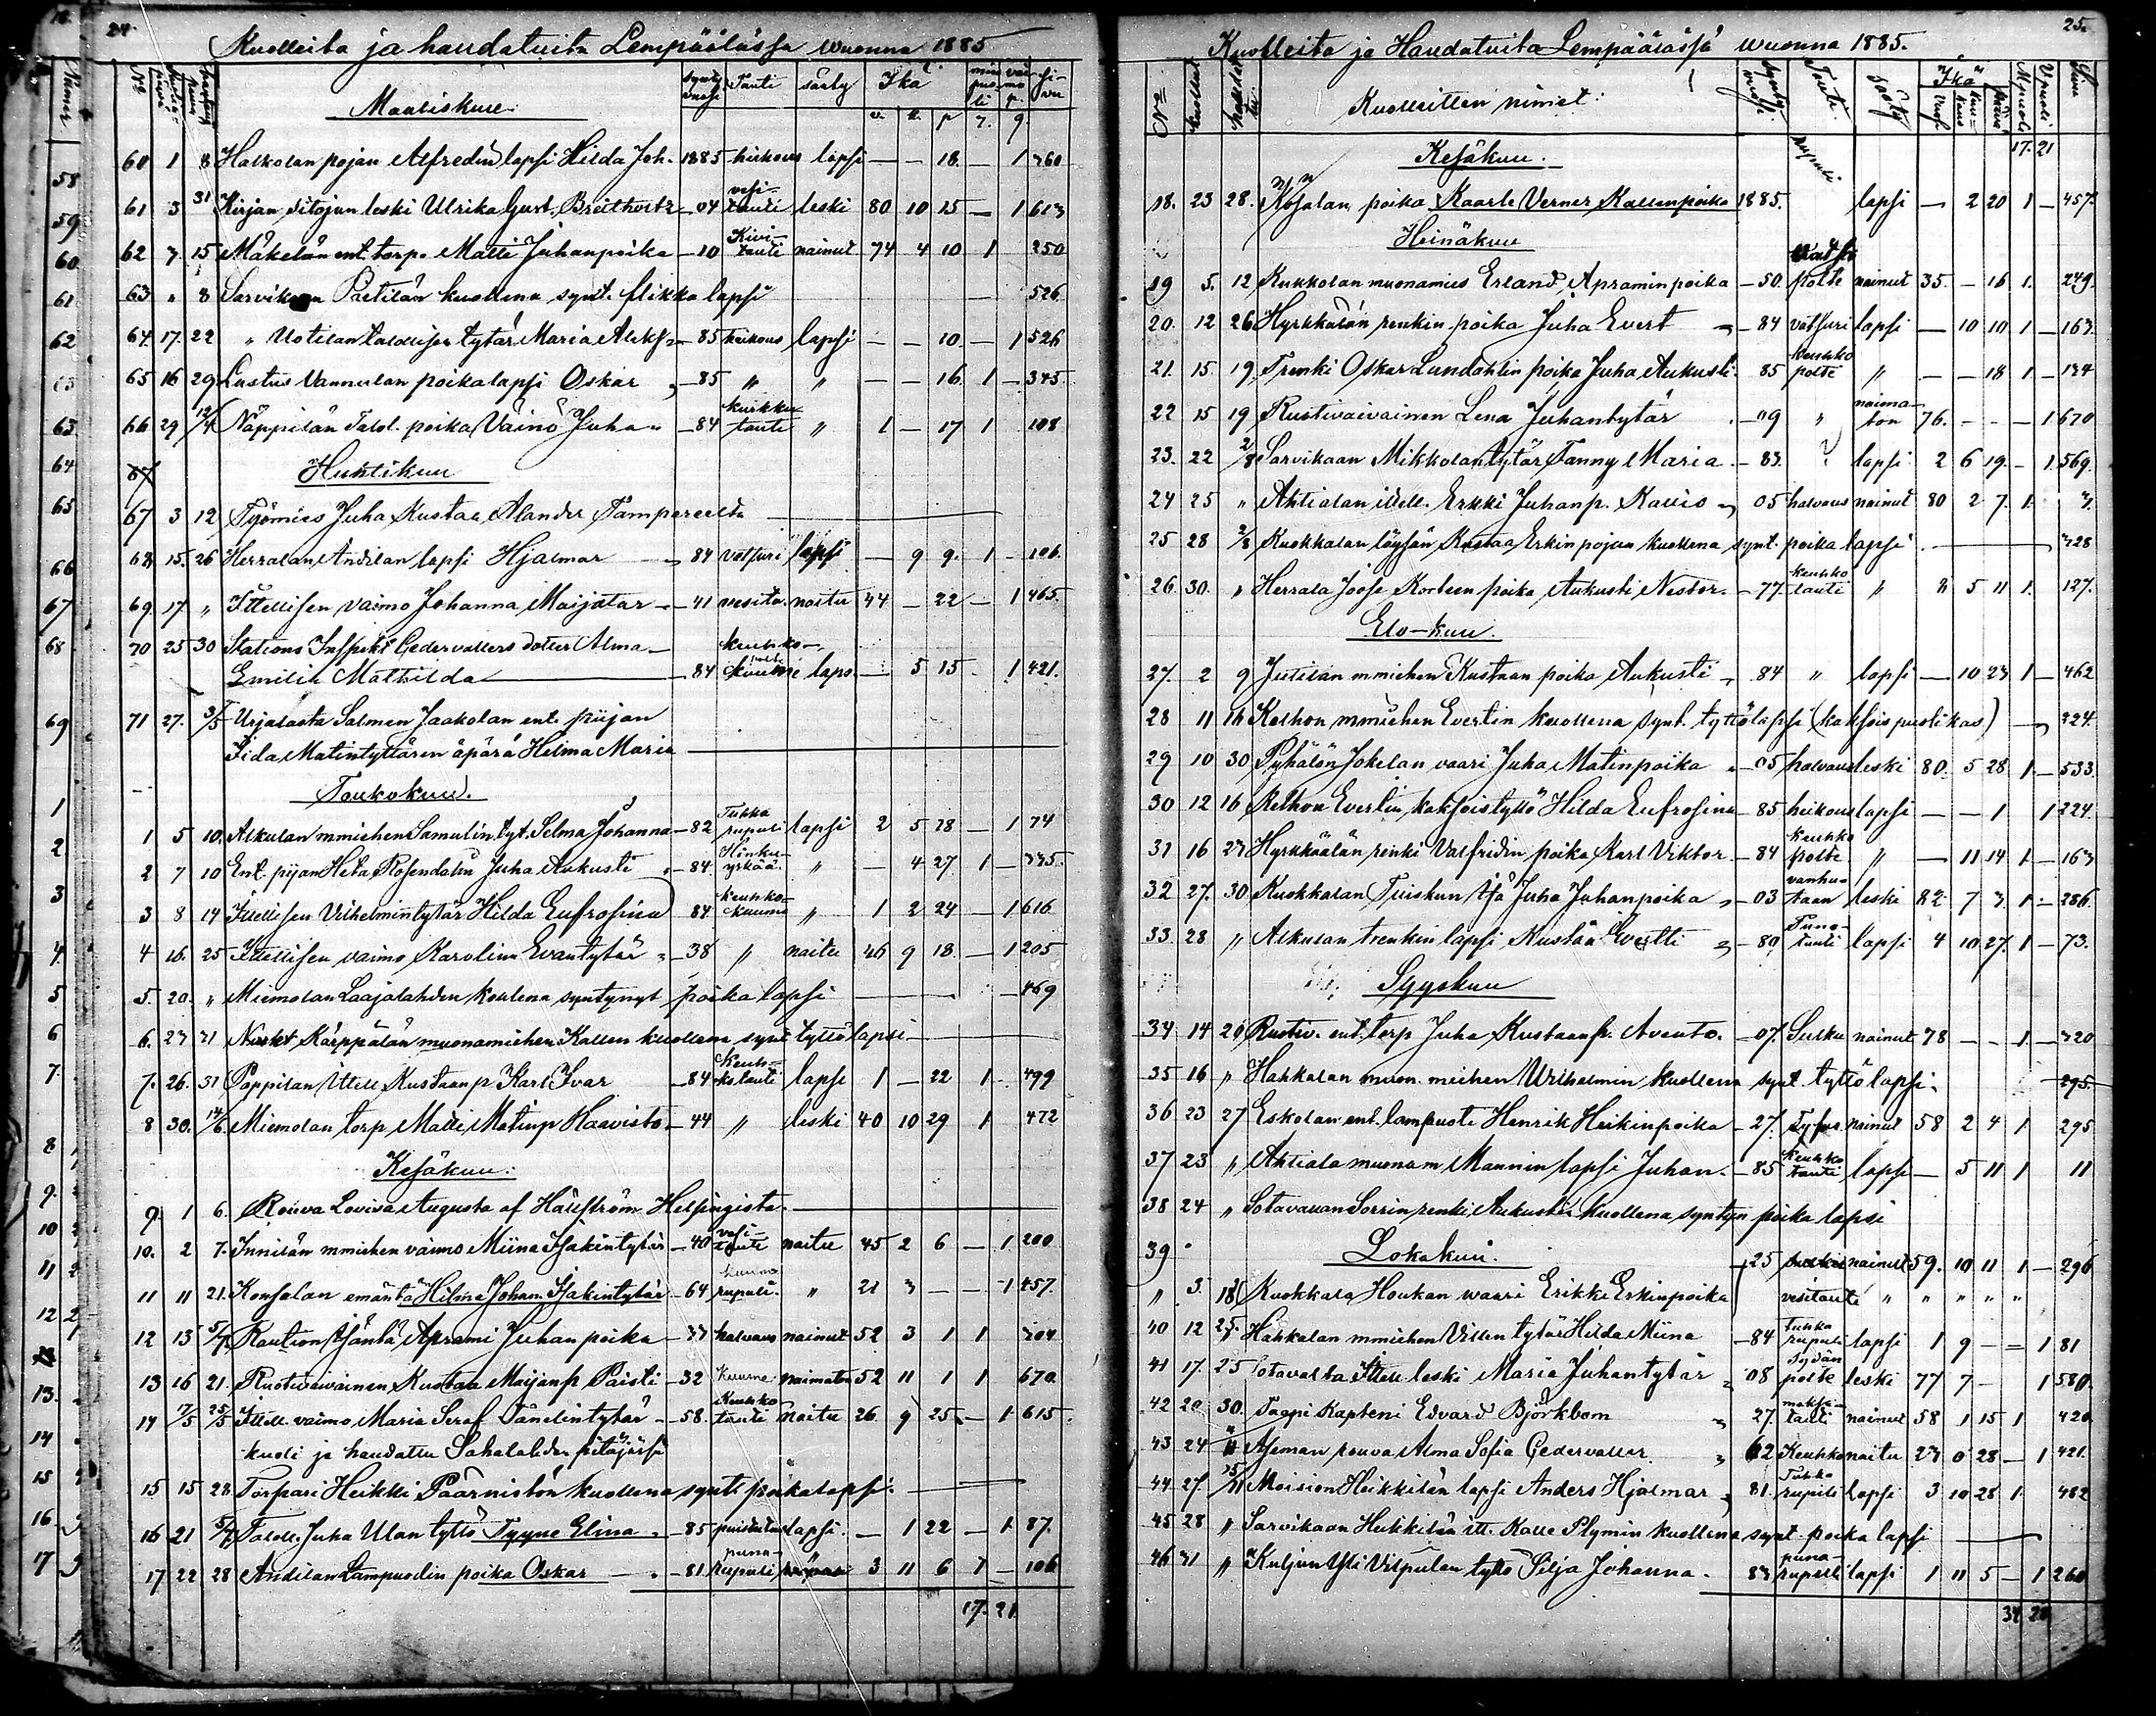 24.
Kuolleita ja haudatuita Lempäälässä wuonna 1885
No Tauti sääty Ikä
Maaliskuu
v. k. p 7. 9.
60 1 8 Halkolan pojan Alfredin lapsi Hilda Joh. 1885 heikous lapsi — — 18. — 1 360
61 3 31 Kirjan sitojan leski Ulrika Gust. — 04 vesi-tauti leski 80 10 15 — 1 613
62 7 15 Mäkelän ent. torp. Matti Juhanpoika — 10 Kivi-tauti nainut 74 4 10 1 250
63 " 8 Sarvikaan Pætilän kuollena synt. flikka lapsi — 526
64 17. 22 " Uotilan talollisen tytär Maria Aleks. — 85 heikous lapsi — — 10 — 1 526
65 16 29 Lastus Vannulan poikalapsi Oskar — 85 " " — — 16 1 — 345
66 29 12/4 Näppilän Talol. poika Väinö Juha " — 84 kurkku tauti " 1 — 17 1 108
67 Huhtikuu
67 3 12 Työmies Juha Kustaa Alander Tampereelta
68 15. 26 Herralan Anttilan lapsi Hjalmar — 84 votsuri lapsi — 9 9. 1 — 106.
69. 17 " Itellisen vaimo Johanna Maijatar — 41 vesita. naitu 44 — 22 — 1 465.
70 25 30 Stations Inspekt Cedervallers dotter Alma
Emilia Mathilda — 84 keuhko- laps — 5 15 . 1 421.
71 27. 3/5 Urjalasta Salmen Jaakolan ent. piijan
Iida Matintyttären äpärä Helma Maria
Toukokuu.
1 5 10. Alkulan mmiehen Samulin tyt. Selma Johanna — 82 Tuhka rupuli lapsi 2 5 18 — 1 74
2 7 10 Ent. piijan Heta Rosendalin Juha Aukusti — 84 Hinku-yskää " — 4 27. 1 — 335.
3 8 14 Itellisen Vilhelmintytär Hilda Eufrosina 84 keuhko-kuume " 1 2 24 — 1 616
4 16. 25 Itellisen vaimo Karolina Evantytär — 38 " naitu 46 9 18. — 1 205
5. 20. " Miemolan Laajalahden kuolena syntynyt poika lapsi — 469
6. 23 31 Kärppälän muonamiehen Kallen kuollena synt tyttölapsi
7. 26. 31 Pappilan Itell Kustaanp Karl Ivar — 84 Keuh-kotauti lapsi 1 — 22 1. 499
8 30. 14/6. Miemolan torp Matti Matinp Haavisto — 44 " leski 40 10 29 1 472
Kesäkuu.
9. 1 6. Rouva Lovisa Augusta af Hällström Helsingista.
10. 2 7. Innilän mmiehen vaimo Miina Isakintytär — 40 vesi-tauti naitu 45 2 6 — 1. 200
11 11 21. Konsalan emäntä Hilma Johan. Isakintytär — 64 rupuli. " 21 3 — — 1 457.
12 13 5/7. Rautions Aprami Juhanpoika — 33 halvaus nainut 52 3 1 1 304
13 16 21. Ruotivaivainen Kustaa Maijanp Paisti — 32 Kuume naimaton 52 11 1 1 670
14 7/5 25/5 Itell. vaimo Maria Seraf. Tanelintytär — 58. Keuhko tauti naitu 26 9 25. — 1 615.
kuoli ja haudattu Sahalahden pitäjässä
15 15 28 Torpari Heikki Päärnistön kuollena synt. poikalapsi.
16 21 5/7 Taloll. Juha Ulan tyttö Tyyne Elina — 85 lapsi. — 1 22 — 1 87.
17 22 28 Anttilan Lampuodin poika Oskar — 81 puna-rupuli 3 11 6 1 — 106
17. 21
25.
Kuolleita ja Haudatuita Lempäälässä wuonna 1885.
No Kuolleitten nimet: Tauti Sääty Ikä
17. 21
Kesäkuu.
18. 23 28. Kosalan poika Kaarle Verner Kallenpoika 1885. rupuli lapsi — 2 20 1 — 457
Heinäkuu
19 5. 12 Kukkolan muonamies Erland Apraminpoika — 50. polte nainut 35. — 16 1. 249.
20. 12 26 Hyrkkälän renkin poika Juha Evert — 84 vatsuri lapsi — 10 10 1 — 163.
21. 15 19 Trenki Oskar Lundahlin poika Juha Aukusti 85 keuhko polte " — — 18 1 — 134
22 15 19 Ruotivaivainen Lena Juhantytär — 09 " naima-ton 76. — — — 1 670
23. 22 2/8 Sarvikaan Mikkolantytär Fanny Maria — 83. ? lapsi 2 6 19. — 1. 569.
24 25 " Ahtialan itell. Erkki Juhanp. Kallio — 05 halvaus nainut 80 2 7. 1. 7.
25 28 2/8 Kuokkalan löysän Kustaa Erkin pojan kuollena synt. poika lapsi — 328
26 30. " Herrala Joose Korteen poika Aukusti Nestor — 77. keuhko tauti " 8 5 11 1. 127.
Elo-kuu.
27. 2 9 Jutilan mmiehen Kustaan poika Aukusti — 84 " lapsi — 10 23 1 — 462
28 11 16 Kelhon mmiehen Evertin kuollena synt. tyttölapsi (kaksoispuolikas) — 224.
29 10 30 Pyhälön Jokelan vaari Juha Matinpoika — 05 halvaus leski 80. 5 28 1. — 533.
30 12 16 Kelhon Evertin kaksoistyttö Hilda Eufrosina — 85 heikous lapsi — — 1 1 224.
31 16 23 Hyrkkälän renki Valfridin poika Karl Viktor — 84 keuhko polte " — 11 14 1 — 163
32 27. 30 Kuokkalan Tuiskun Isä Juha Juhanpoika — 03 vanhu-taan leski 82 7 3 1. — 286.
33. 28 " Alkulan trenkin lapsi Kustaa Evertti — 80 tauti lapsi 4 10 27. 1 — 73.
Syyskuu
34 14 20 Ruotiv. ent. torp Juha Kustaanp. Avento. — 07. Sulku nainut 78 — — 1 — 320
35 16 " Hahkalan muon. miehen Wilhelmin kuollena synt. tyttölapsi. 295.
36 23 27 Eskolan ent. lampuoti Henrik Heikinpoika — 27. nainut 58 2 4 1 295
37 23 " Ahtiala muonam Mannin lapsi Juhan. — 85 Keuhko tauti lapsi — 5 11 1 11
38 24 " Sotavallan Sorrin renki Aukusti kuollena syntyn poika lapsi
39 " Lokakuu. 25 nainut 59. 10 11 1 — 296
" 3. 18 Kuokkala Houkan waari Erikki Erkinpoika vesitauti " " " " "
40 12 25. Hahkalan mmiehen Villen tytär Hilda Miina — 84 tuhka rupuli lapsi 1 9 — = 1 81
41 17. 25 Sotavalta Itell. leski Maria Juhantytär — 08 sydän polte leski 77 7 — 1 580.
42 20 30. Tarpi Kapteni Edvard Björkbom 27. maksa-tauti nainut 58 1 15 1 420
43 24 " Aseman rouva Alma Sofia Cedervaller 62 Keuhko naitu 23 0 28 — 1 421.
44 27. 15/11 Moision Heikkilän lapsi Anders Hjalmar 81. Tuhka rupuli lapsi 3 10 28 1. 482
45 28 " Sarvikaan Heikkilän itt. Kalle Plymin kuollena synt. poika lapsi
46 31 " Kuljun Yli Vilpulan tyttö Silja Johanna. 83 puna-rupuli lapsi 1 11 5 — 1 260
34 28